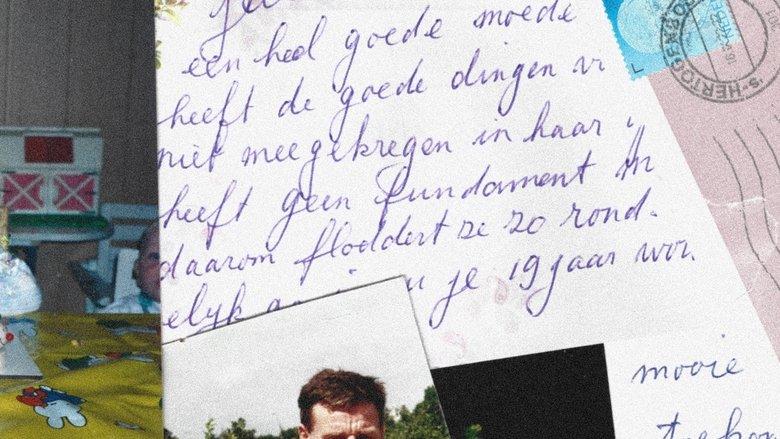 een heel goede moede
heeft de goede dingen v
niet meegekregen in haar
heeft geen fundament In
daarom floddert ze zo rond.
elijk
u je 19 jaar wor
mooie
'S-HERTOGENBO